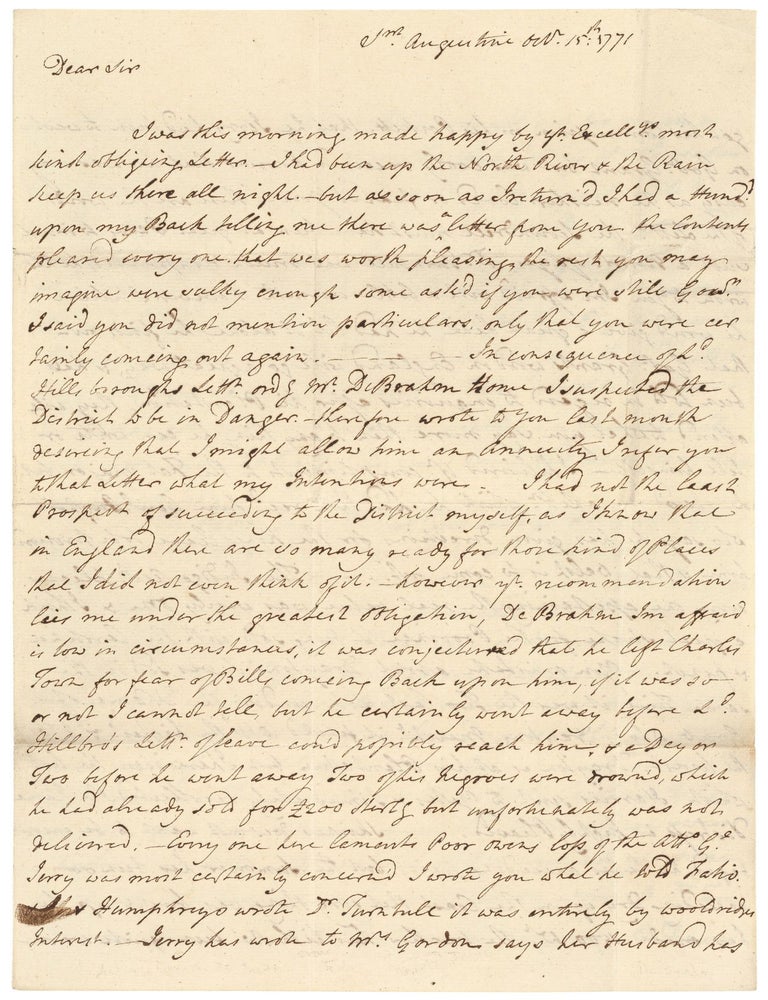 St. Augustine Octr. 15th. 1771
Dear Sir
I was this morning made happy by yr. Excellys. most
kind obligeing Letter. - I had been up the North River & the Rain
keep us there all night. - but as soon as I return'd I had a Hundd.
upon my Back telling me there was a letter from You the Contents
pleased every one that was worth pleasing, the rest you may
imagine were sulky enough some asked if you were still Govr.
I said you did not mention particulars only that you were cer
tainly comeing out again. - In consequence of Ld.
Hillsbroughs Lettr. ordg Mr. DeBrahm Home I suspected the
District to be in Danger - therefore wrote to you last month
desireing that I might allow him an annuity I refer you
to that Letter what my Intentions were. I had not the least
Prospect of succeeding to the District myself, as I know that
in England there are so many ready for those kind of Places
that I did not even think of it. - however yr. recommendation
lies me under the greatest obligation, DeBrahm Im affraid
is low in circumstances, it was conjectured that he left Charles
Town for fear of Bills comeing Back upon him, if it was so
or not I cannot tell, but he certainly went away before Ld.
Hillbro's Lettr. of leave coud possibly reach him, & a Day or
Two before he went away Two of his Negroes were drownd, which
he had already sold for £200 sterlg but unfortunately was not
delivered. - Every one here laments Poor owens loss of the Atty. Gl.
Jerry was most certainly concernd I wrote you what he told Fatio.
Humphreys wrote Dr. Turnbull it was entirely by wooldridges
Interest. - Jerry has wrote to Mrs. Gordon says her Husband has